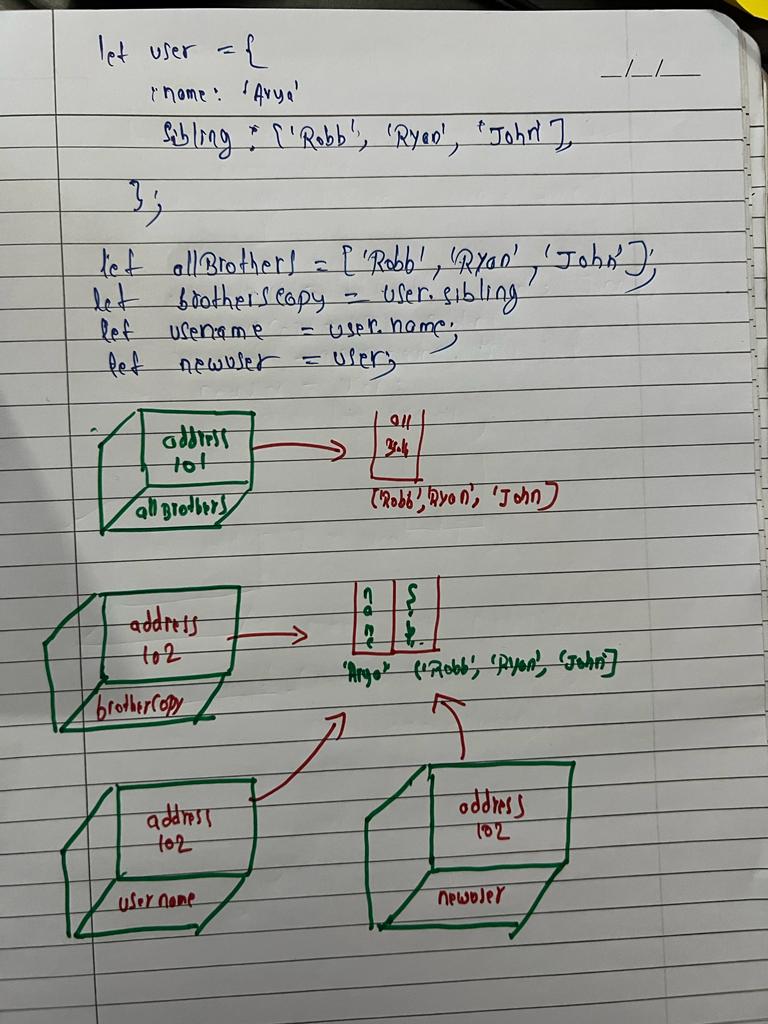 let user = {
name: 'Arya'
sibling : ['Robb', 'Ryan', 'John'],
};
__/__/__
let allBrothers = ['Robb', 'Ryan', 'John'];
let brotherscopy = user.sibling
let usename = user.name;
let newuser = user;
address
101
allBrothers
all
['Robb', 'Ryan', 'John]
address
102
brothercopy
'Arya' ['Robb', 'Ryan', 'John']
address
102
username
address
102
newuser